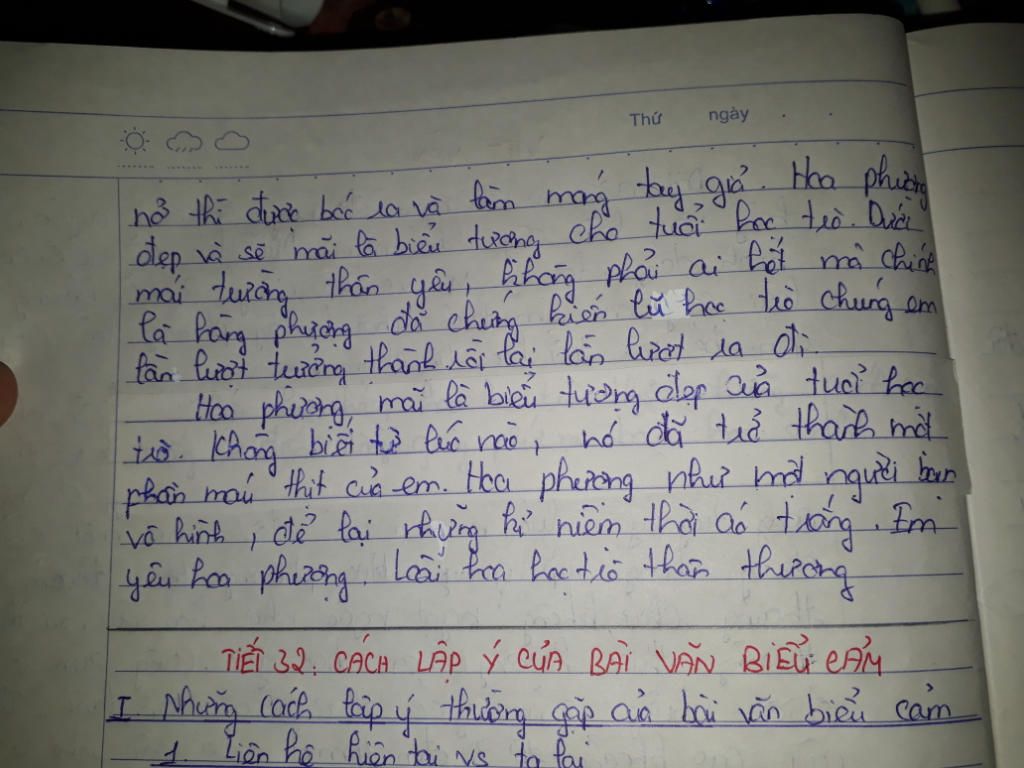 Thứ ngày
nở thì được bóc ra và làm móng tay giả. Hoa phượng
đẹp và sẽ mãi là biểu tượng cho tuổi học trò. Dưới
mái trường thân yêu, không phải ai hết mà chính
là hàng phượng đã chứng kiến lũ học trò chúng em
lần lượt trưởng thành rồi lại lần lượt ra đi.
Hoa phượng, mãi là biểu tượng đẹp của tuổi học
trò. Không biết từ lúc nào, nó đã trở thành một
phần máu thịt của em. Hoa phượng như một người bạn
vô hình, để lại những kỉ niệm thời áo trắng. Em
yêu hoa phượng. Loài hoa học trò thân thương
TIẾT 32. CÁCH LẬP Ý CỦA BÀI VĂN BIỂU CẢM
I Những cách lập ý thường gặp của bài văn biểu cảm
1. Liên hệ hiện tại vs tg lai